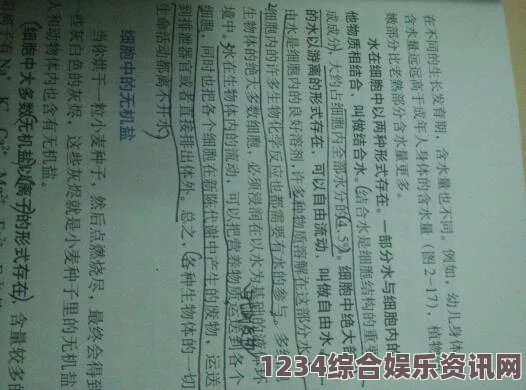 在不同的生长发育期，含水量也不同。例如，幼儿身体
含水量远远高于成年人身体的含水量（图2-17），植物
嫩部分比老熟部分含水量更多。
水在细胞中以两种形式存在。一部分水与细胞内的
他物质相结合，叫做结合水。（结合水是细胞结构的重
成成分，大约占细胞内全部水分的4.5%。细胞中绝大
的水以游离的形式存在，可以自由流动，叫做自由水
由水是细胞内的良好溶剂，许多种物质溶解在这部分水
细胞内的许多生物化学反应也都需要有水的参与。多
生物体的绝大多数细胞，必须浸润在以水为基础的
境中。水在生物体内的流动，可以把营养物质运送到各个
细胞，同时也把各个细胞在新陈代谢中产生的废物，运送
到排泄器官或者直接排出体外。总之，各种生物体的一切
生命活动都离不开水。
细胞中的无机盐
当你烘干一粒小麦种子，然后点燃烧尽，最终会得
一些灰白色的灰烬，这些灰烬就是小麦种子里的无机盐
人和动物体内也含有无机盐。
细胞中大多数无机盐以离子的形式存在，含量较多的
1234综合娱乐资讯网